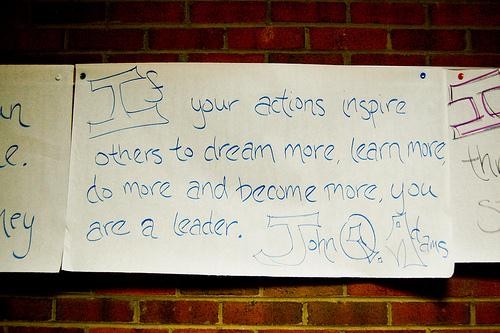 If your actions inspire
others to dream more, learn more,
do more and become more, you
are a leader. John Q. Adams
un
e.
ney
th